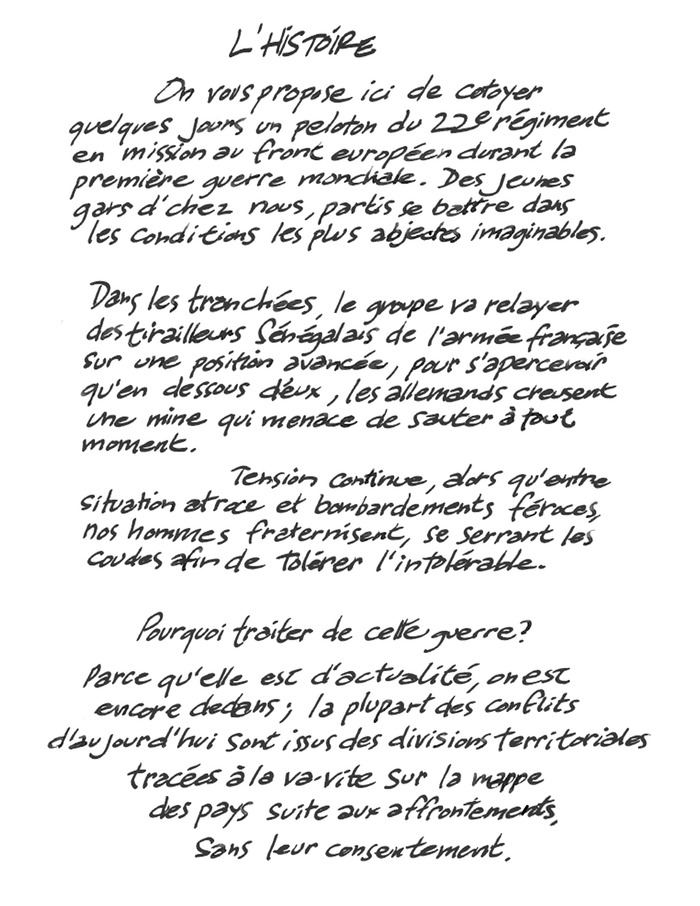 L'HISTOIRE
On vous propose ici de cotoyer
quelques jours un peloton du 22e régiment
en mission au front européen durant la
première guerre mondiale. Des jeunes
gars d'chez nous, partis se battre dans
les conditions les plus abjectes imaginables.
Dans les tranchées, le groupe va relayer
des tirailleurs Sénégalais de l'armée française
sur une position avancée, pour s'apercevoir
qu'en dessous d'eux, les allemands creusent
une mine qui menace de sauter à tout
moment.
Tension continue, alors qu'entre
situation atroce et bombardements féroces,
nos hommes fraternisent, se serrant les
coudes afin de tolérer l'intolérable.
Pourquoi traiter de cette guerre?
Parce qu'elle est d'actualité, on est
encore dedans; la plupart des conflits
d'aujourd'hui sont issus des divisions territoriales
tracées à la va-vite sur la mappe
des pays suite aux affrontements,
sans leur consentement.